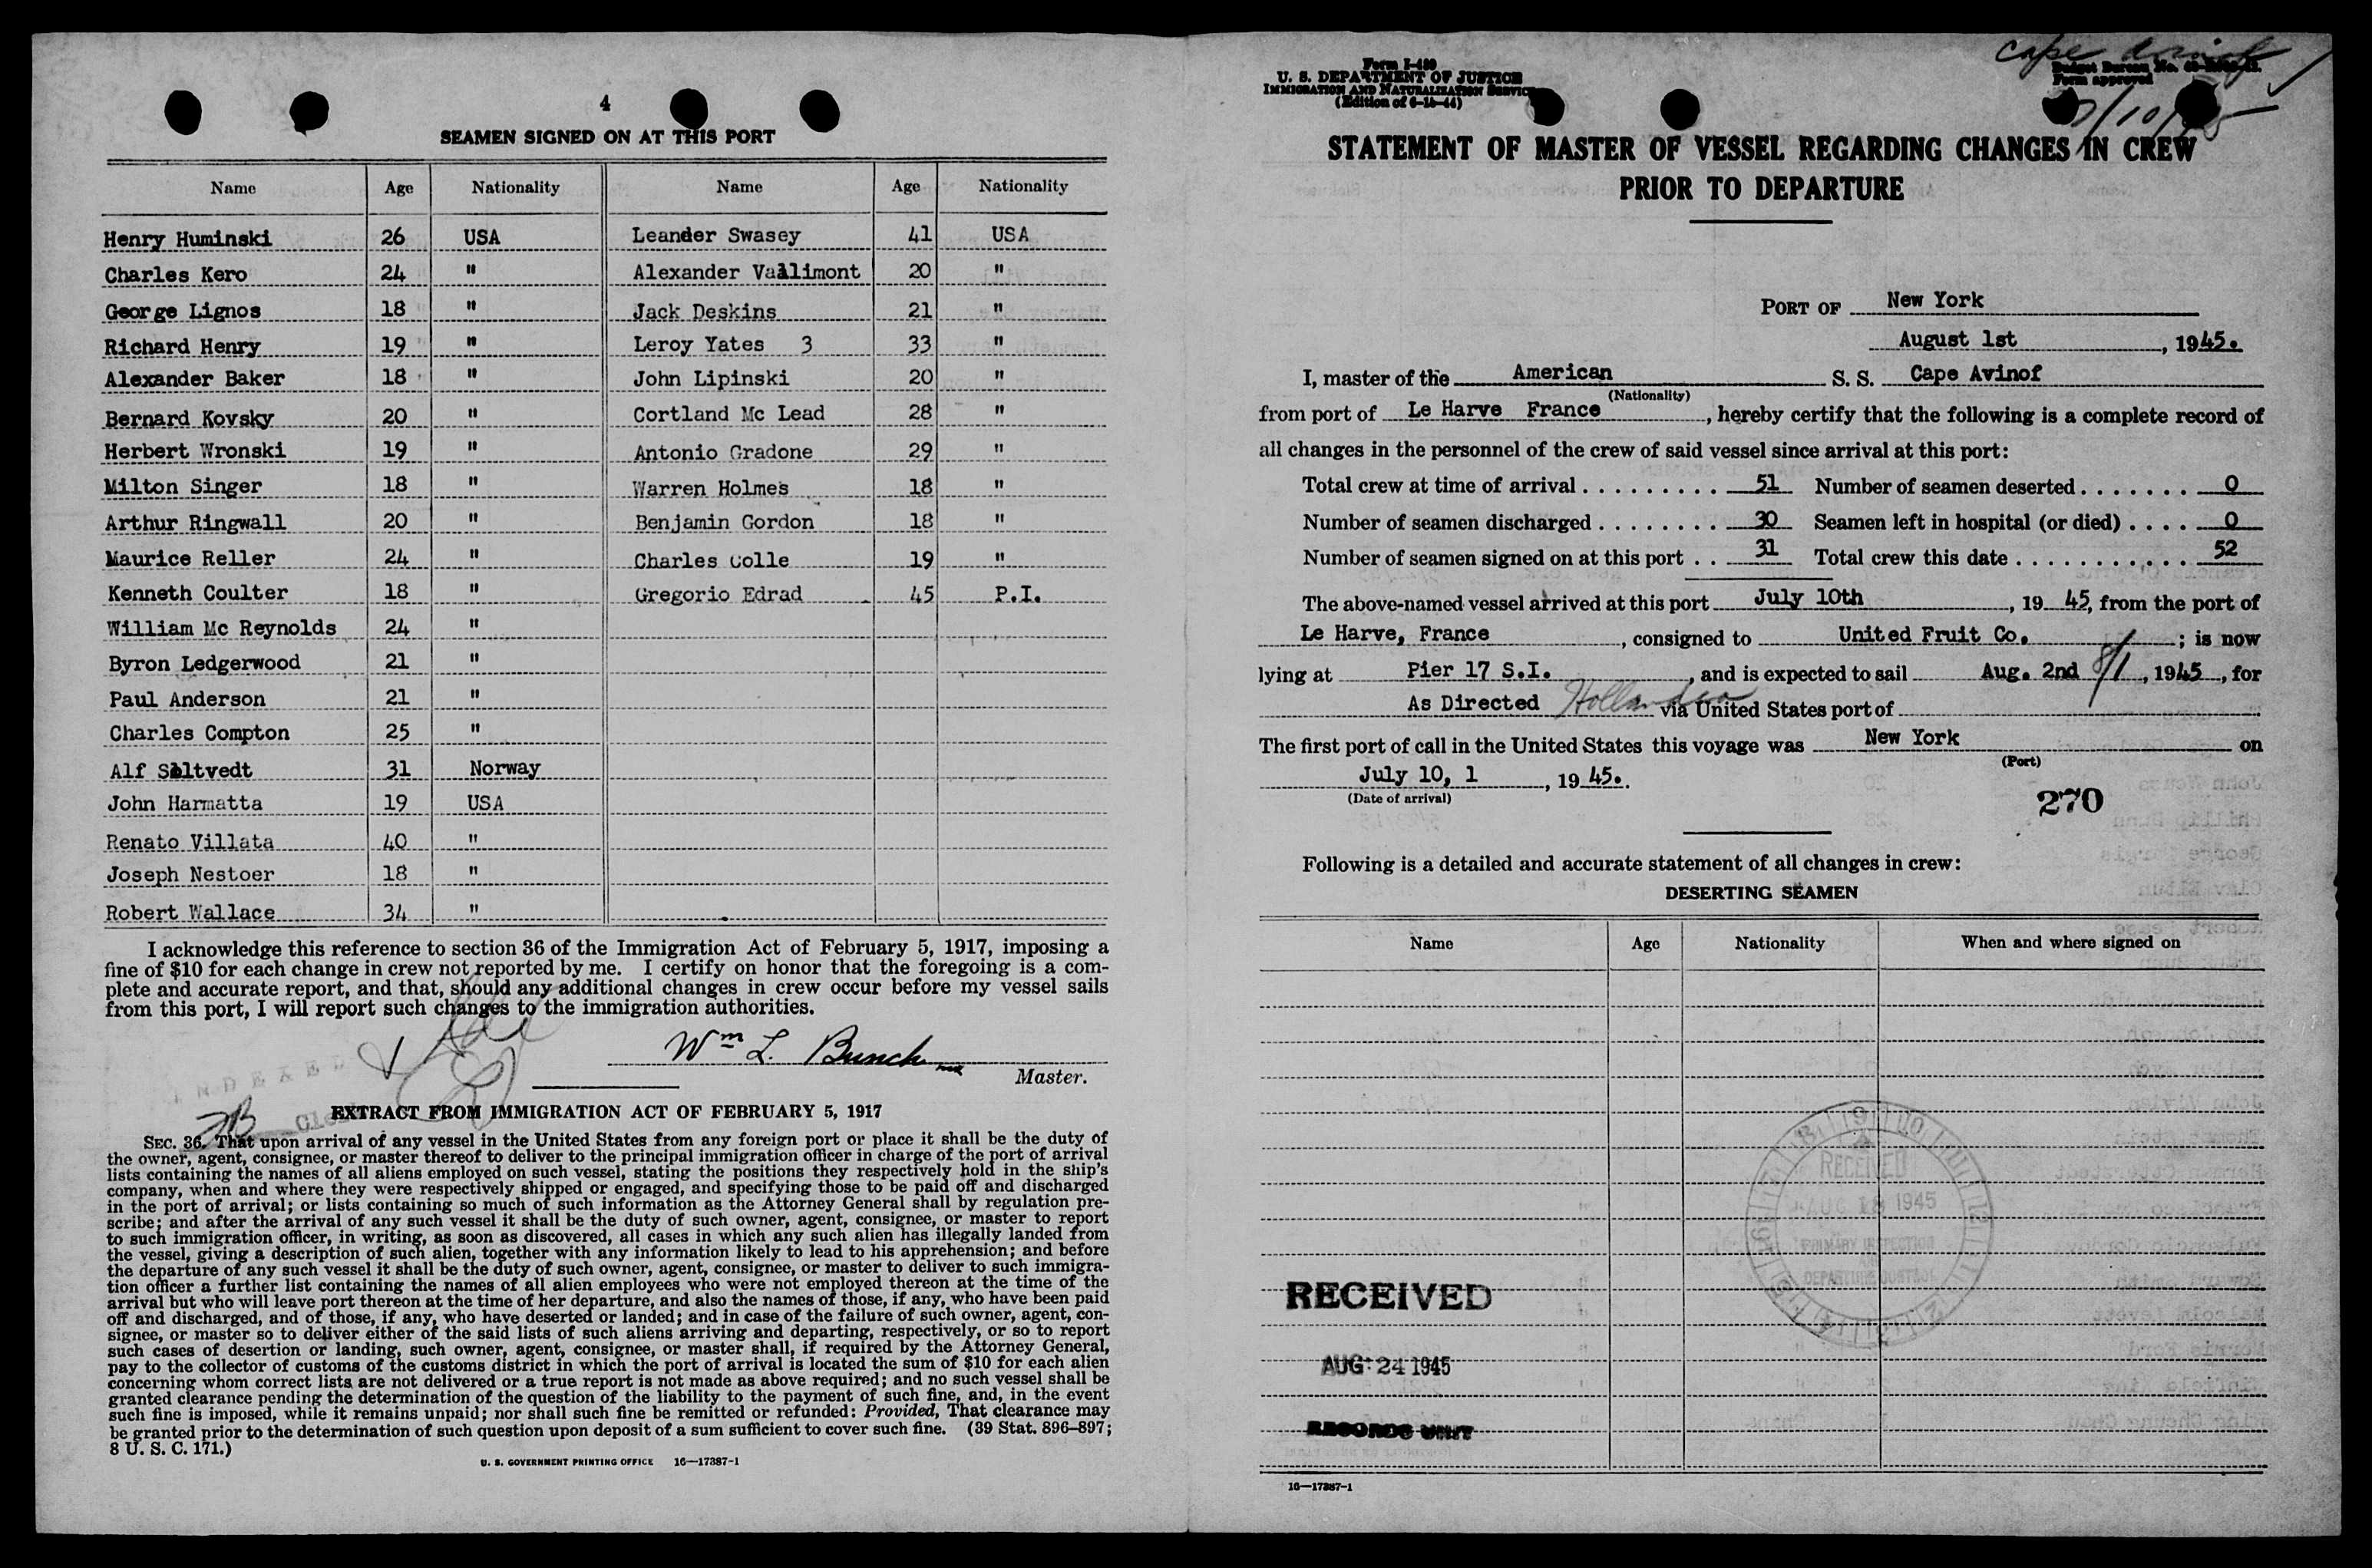 4
SEAMEN SIGNED ON AT THIS PORT
Name Age Nationality Name Age Nationality
Henry Huminski 26 USA Leander Swasey 41 USA
Charles Kero 24 " Alexander Vallimont 20 "
George Lignos 18 " Jack Deskins 21 "
Richard Henry 19 " Leroy Yates 3 33 "
Alexander Baker 18 " John Lipinski 20 "
Bernard Kovsky 20 " Cortland Mc Lead 28 "
Herbert Wronski 19 " Antonio Gradone 29 "
Milton Singer 18 " Warren Holmes 18 "
Arthur Ringwall 20 " Benjamin Gordon 18 "
Maurice Reller 24 " Charles Colle 19 "
Kenneth Coulter 18 " Gregorio Edrad 45 P.I.
William Mc Reynolds 24 "
Byron Ledgerwood 21 "
Paul Anderson 21 "
Charles Compton 25 "
Alf 31 Norway
John Harmatta 19 USA
Renato Villata 40 "
Joseph Nestoer 18 "
Robert Wallace 34 "
I acknowledge this reference to section 36 of the Immigration Act of February 5, 1917, imposing a
fine of $10 for each change in crew not reported by me. I certify on honor that the foregoing is a com-
plete and accurate report, and that, should any additional changes in crew occur before my vessel sails
from this port, I will report such changes to the immigration authorities.
Wm L. Bunch
Master.
INDEXED
EXTRACT FROM IMMIGRATION ACT OF FEBRUARY 5, 1917
SEC. 36. That upon arrival of any vessel in the United States from any foreign port or place it shall be the duty of
the owner, agent, consignee, or master thereof to deliver to the principal immigration officer in charge of the port of arrival
lists containing the names of all aliens employed on such vessel, stating the positions they respectively hold in the ship's
company, when and where they were respectively shipped or engaged, and specifying those to be paid off and discharged
in the port of arrival; or lists containing so much of such information as the Attorney General shall by regulation pre-
scribe; and after the arrival of any such vessel it shall be the duty of such owner, agent, consignee, or master to report
to such immigration officer, in writing, as soon as discovered, all cases in which any such alien has illegally landed from
the vessel, giving a description of such alien, together with any information likely to lead to his apprehension; and before
the departure of any such vessel it shall be the duty of such owner, agent, consignee, or master to deliver to such immigra-
tion officer a further list containing the names of all alien employees who were not employed thereon at the time of the
arrival but who will leave port thereon at the time of her departure, and also the names of those, if any, who have been paid
off and discharged, and of those, if any, who have deserted or landed; and in case of the failure of such owner, agent, con-
signee, or master so to deliver either of the said lists of such aliens arriving and departing, respectively, or so to report
such cases of desertion or landing, such owner, agent, consignee, or master shall, if required by the Attorney General,
pay to the collector of customs of the customs district in which the port of arrival is located the sum of $10 for each alien
concerning whom correct lists are not delivered or a true report is not made as above required; and no such vessel shall be
granted clearance pending the determination of the question of the liability to the payment of such fine, and, in the event
such fine is imposed, while it remains unpaid; nor shall such fine be remitted or refunded: Provided, That clearance may
be granted prior to the determination of such question upon deposit of a sum sufficient to cover such fine. (39 Stat. 896–897;
8 U. S. C. 171.)
U. S. GOVERNMENT PRINTING OFFICE 16—17387-1
Cape Avinof
7/10/45
Form I-489
U. S. DEPARTMENT OF JUSTICE
IMMIGRATION AND NATURALIZATION SERVICE
(Edition of 6-15-44)
Form approved
STATEMENT OF MASTER OF VESSEL REGARDING CHANGES IN CREW
PRIOR TO DEPARTURE
PORT OF New York
August 1st, 1945.
I, master of the American S. S. Cape Avinof
(Nationality)
from port of Le Harve France, hereby certify that the following is a complete record of
all changes in the personnel of the crew of said vessel since arrival at this port:
Total crew at time of arrival . . . . . . . . . 51 Number of seamen deserted . . . . . . . 0
Number of seamen discharged . . . . . . . . 30 Seamen left in hospital (or died) . . . . 0
Number of seamen signed on at this port . . 31 Total crew this date . . . . . . . . . . . . 52
The above-named vessel arrived at this port July 10th, 19 45, from the port of
Le Harve, France, consigned to United Fruit Co.; is now
lying at Pier 17 S.I., and is expected to sail Aug. 2nd 8/1, 1945, for
As Directed via United States port of
The first port of call in the United States this voyage was New York on
(Port)
July 10, 1, 19 45.
(Date of arrival)
270
Following is a detailed and accurate statement of all changes in crew:
DESERTING SEAMEN
Name Age Nationality When and where signed on
RECEIVED
AUG 18 1945
PRIMARY INSPECTION
DEPARTURE CONTROL
RECEIVED
AUG 24 1945
RECORDS UNIT
16—17387-1